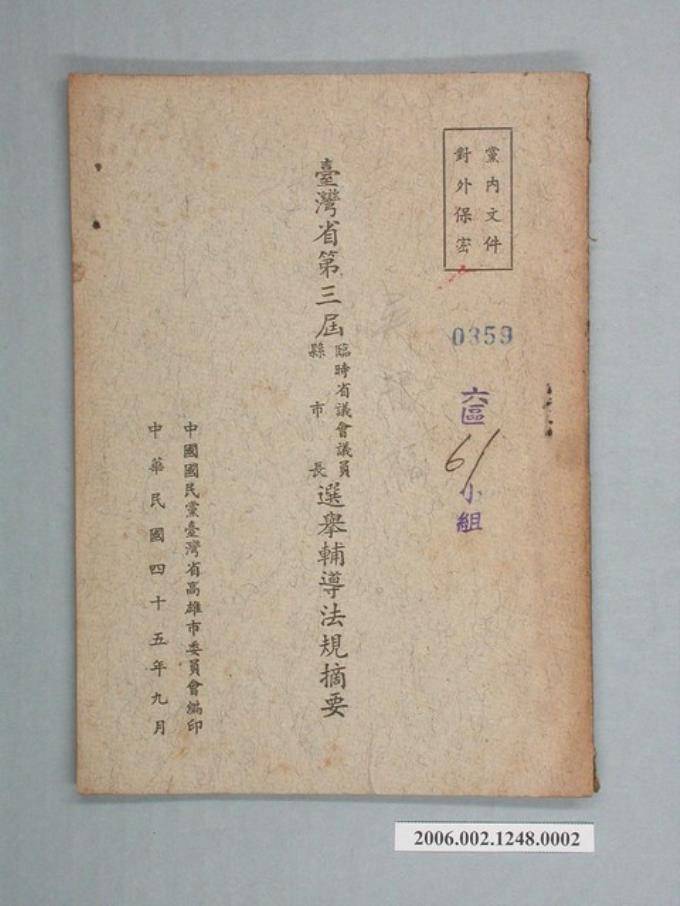 黨內文件
對外保密
0359
六區
61
小組
臺灣省第三屆
臨時省議會議員
縣市長
選舉輔導法規摘要
中國國民黨臺灣省高雄市委員會編印
中華民國四十五年九月
2006.002.1248.0002